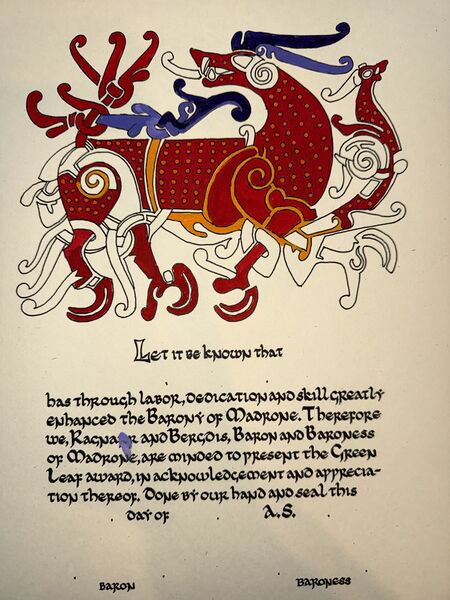 Let it be known that
has through labor, dedication and skill greatly
enhanced the Barony of Madrone. Therefore
we, Ragnarr and Bergdis, Baron and Baroness
of Madrone, are minded to present the Green
Leaf award, in acknowledgement and apprecia-
tion thereof. Done by our hand and seal this
day of A.S.
Baron Baroness